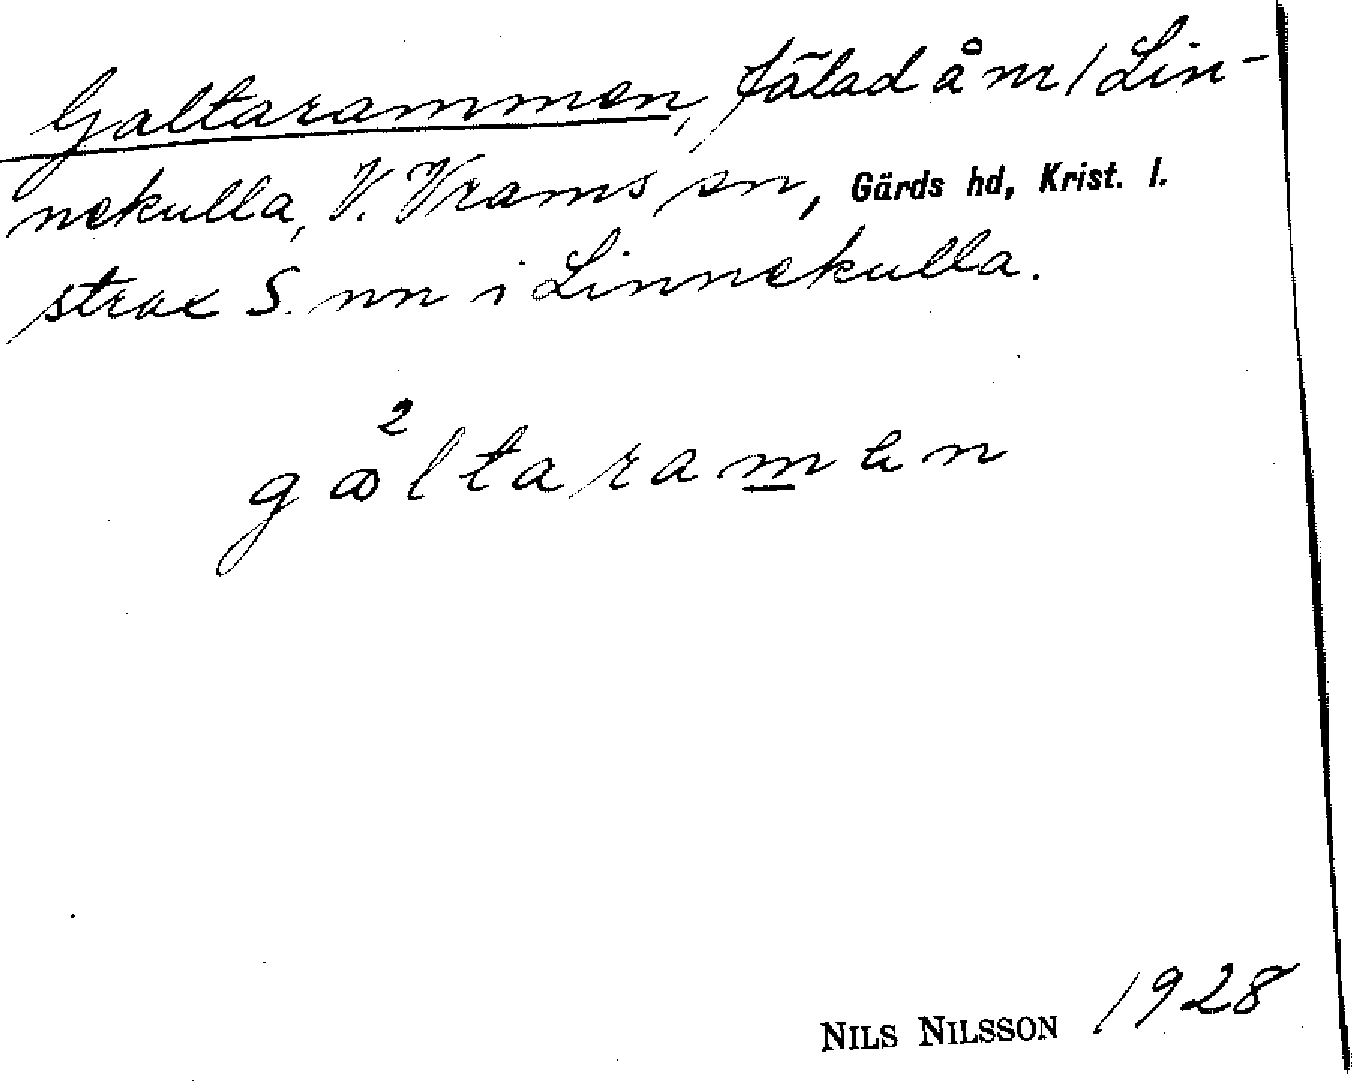 Galtarammen, fälad å nr 1 Lin-
nekulla, V. Vrams sn, Gärds hd, Krist. l.
strax S. om i Linnekulla.
2
gαltaramen
NILS NILSSON 1928